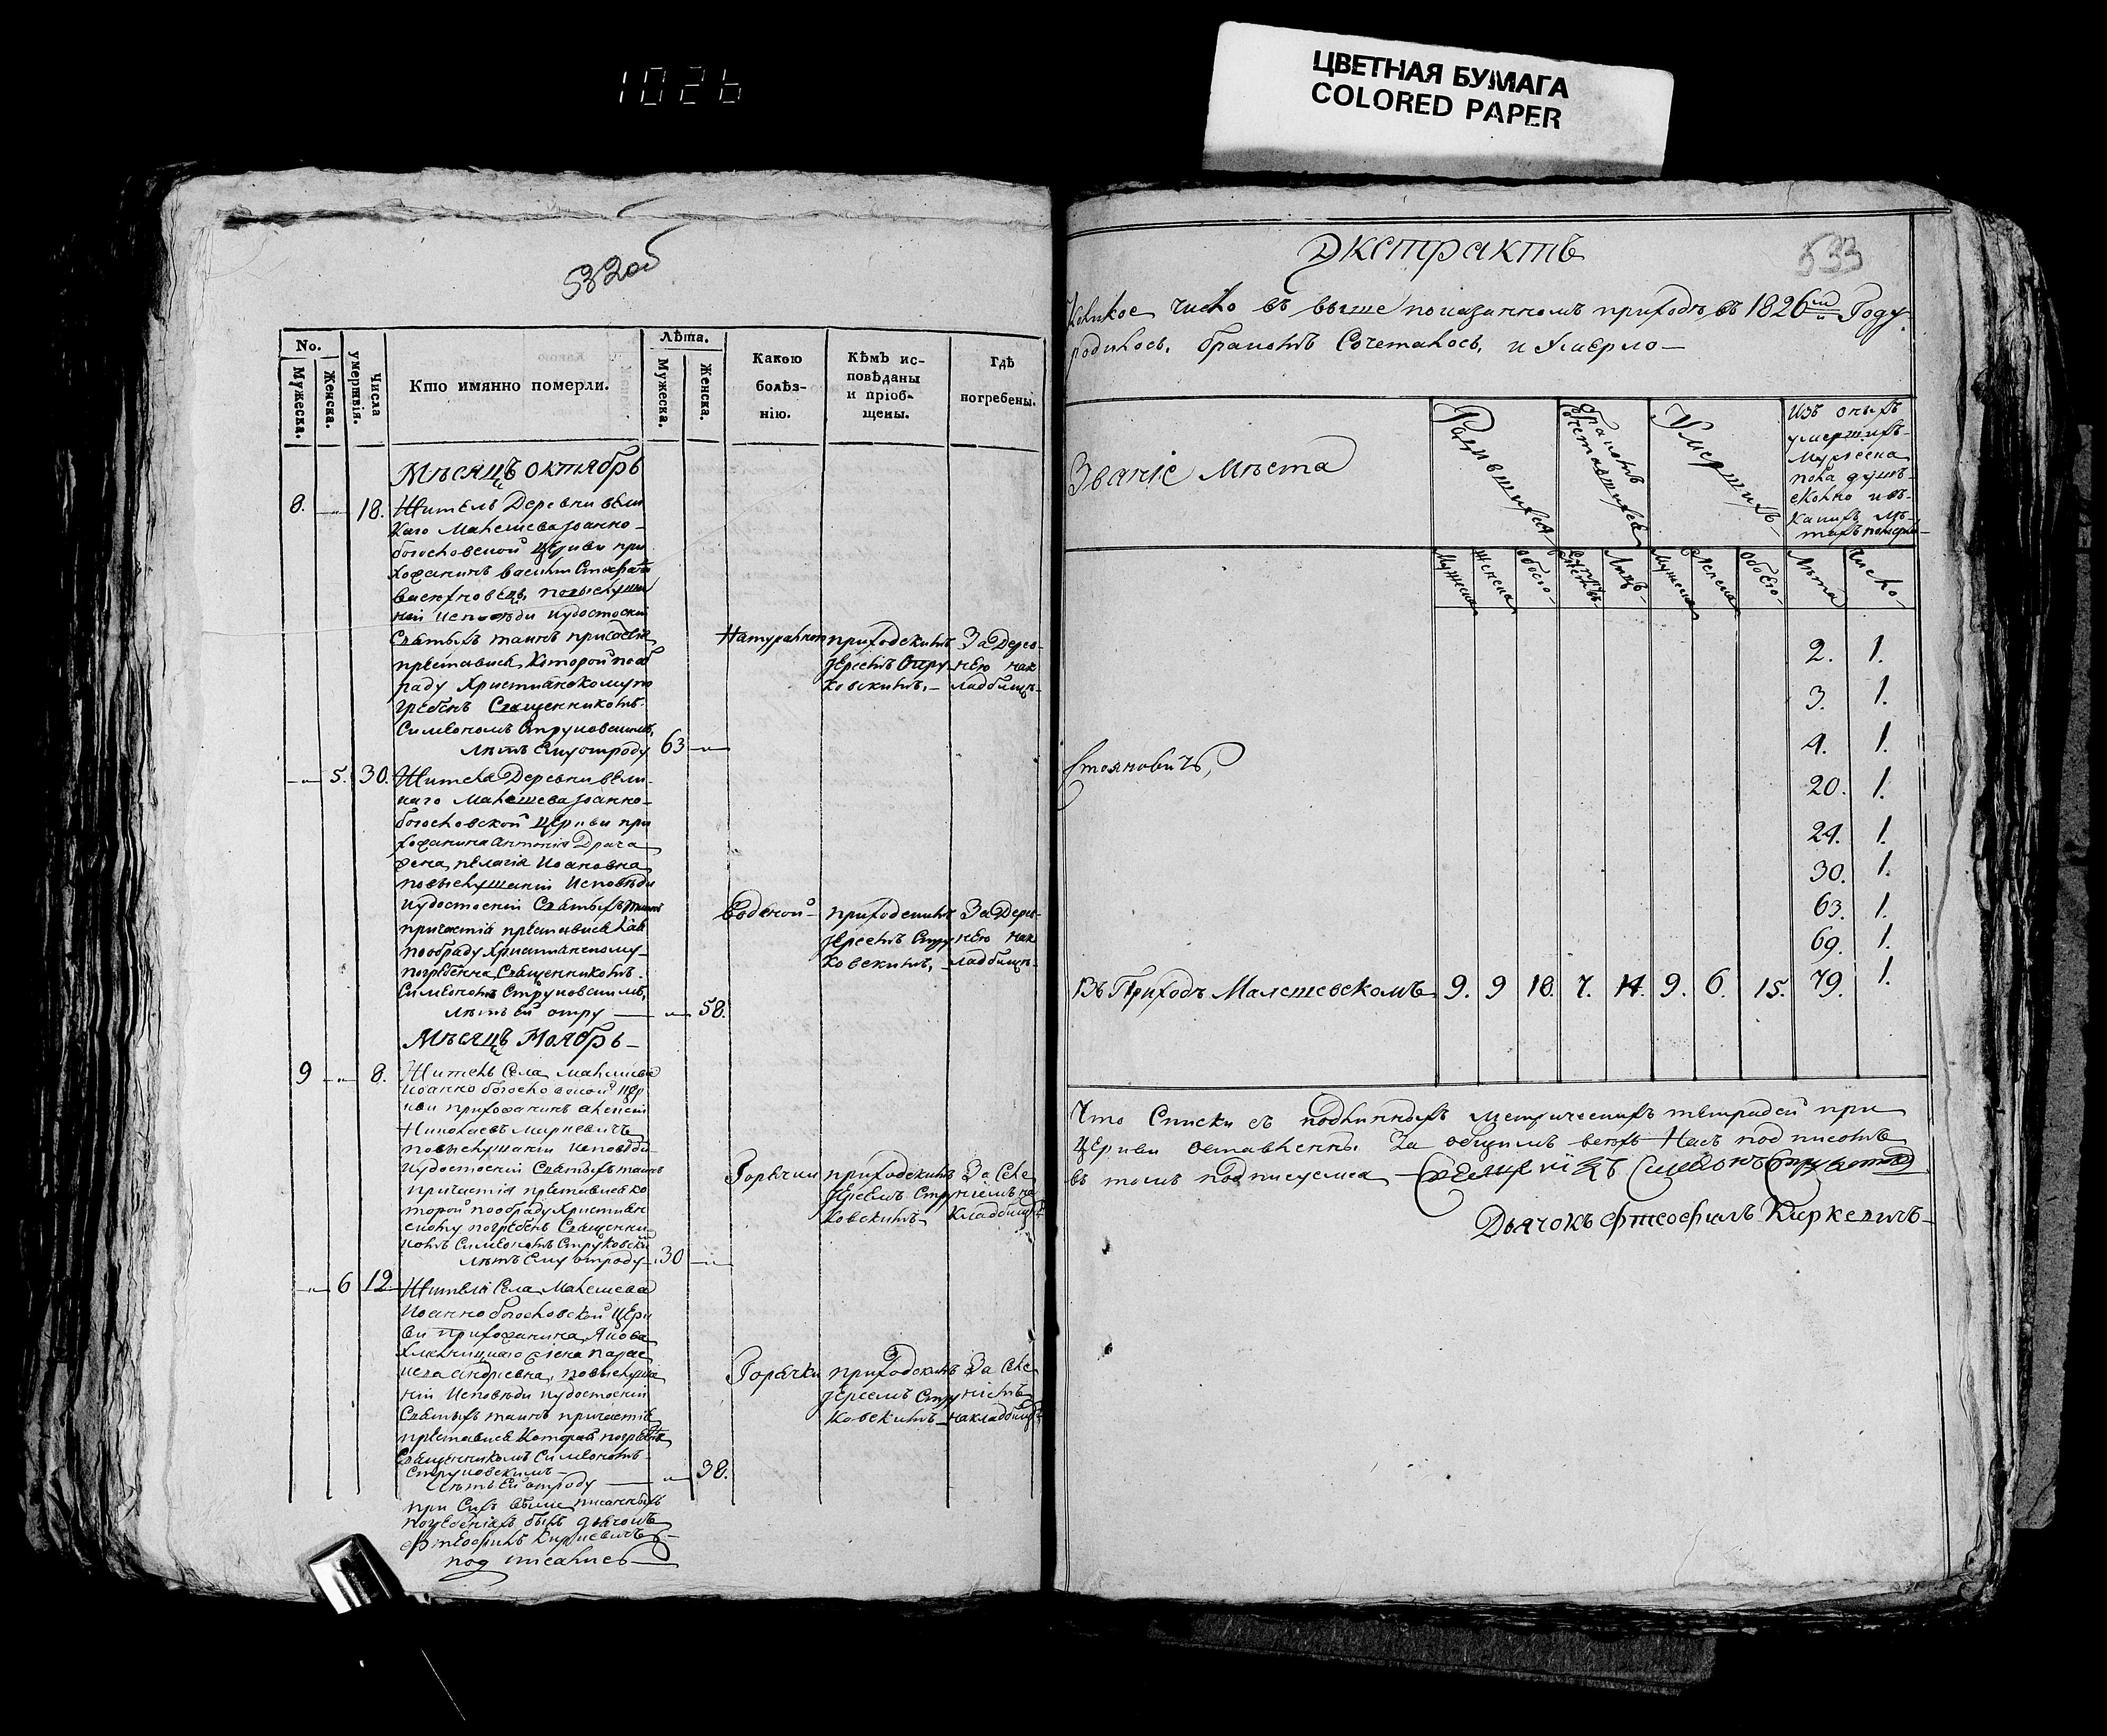 1026
ЦВЕТНАЯ БУМАГА
COLORED PAPER
532об
No.
Мужеска.
Женска.
Числа умертвія.
Кто имянно померли.
Лѣта.
Мужеска.
Женска.
Какою болѣз-нію.
Кѣмъ ис-повѣданы и пріоб-щены.
Гдѣ погребены.
Мѣсяцъ октябрь
8. — 18. Житель Деревни вели
каго Малешева Іоанно-
богословской Церкви при
хожанинъ василій
повыслуша
ніи исповѣди иудостоеніи
Святыхъ таинъ
преставися Которой пооб
раду Христианскому по
гребенъ Священникомъ
Симеономъ Струковскимъ,
лѣтъ Ему отроду 63 —
Натуралною
приходскимъ Іереемъ Стру ковскимъ. —
За Дерев- нею нак ладбищѣ-
— 5. 30. Жителка Деревни вели-
каго Малешева Іоанно-
богословской Церкви при
хожанина антонія Драга
жена, пелагія Иоановна
повыслушаніи Исповѣди
иудостоеніи Святыхъ таинъ
причастія преставися Кая
пообраду Христианскому
погребенна Священникомъ
Симеономъ Струковскимъ,
лѣтъ ей отру — 58.
Водяной —
приходскимъ Іереемъ Стру ковскимъ, —
За Дерев- нею нак ладбищѣ-
Мѣсяцъ Ноябрь —
9 — 8. Житель Села Малешева
Иоанно богословской Цер
кви прихожанинъ алексій
Николаевъ Миркевичъ
повыслушаніи исповѣди
иудостоеніи Святыхъ таинъ
причастія преставися ко
торой пообраду Христиан
скому погребенъ Священни
комъ Симеономъ Струковски
лѣтъ Ему отроду — 30 —
Горячки
приходскимъ Іереемъ Стру ковскимъ
За Селе ніемъ на кладбищѣ
— 6 12 Жителки Села Малешева
Иоанно богословской Церк
ви прихожанина, Якова
жена Парас
кева андріевна, повыслуша
ніи Исповѣди иудостоеніи
Святыхъ таинъ причастія
преставися Которая погребена
Священникомъ Симеономъ
Струковскимъ
лѣтъ Ей отроду — 38.
Горячки
приходскимъ Іереемъ Стру ковскимъ —
За Селе ніемъ накладбищѣ
при Сихъ выше писанныхъ
погребеніяхъ былъ дьячокъ
Фтеофилъ Киркевичъ —
под писалися
Экстрактъ
533
Коликое число въ выше показанномъ приходѣ въ 1826мъ Году
родилось, бракомъ Сочеталось, и Умерло —
Званіе Мѣста
Родившихся
бракомъ сочетавшихся
Умершихъ
Изъ оныхъ умершихъ Мужеска пола душъ сколко и въ какихъ лѣ- тахъ померло
Мужеска
Женска
Обоего
Лицъ
Мужеска
Женска
Обоего
Лѣта
Число
2. 1.
3. 1.
4. 1.
20. 1.
24. 1.
30. 1.
63. 1.
69. 1.
79. 1.
Стояновичъ,
Въ Приходѣ Малешевскомъ 9. 9 18. 7. 14. 9. 6. 15.
Что Списки съ подлинныхъ Метрическихъ тетрадей при
Церкви оставленны За общимъ всехъ Насъ под писомъ
въ томъ подписуемся Священникъ Симеонъ Струковскій
Дьячокъ Фтеофилъ Киркевичъ —